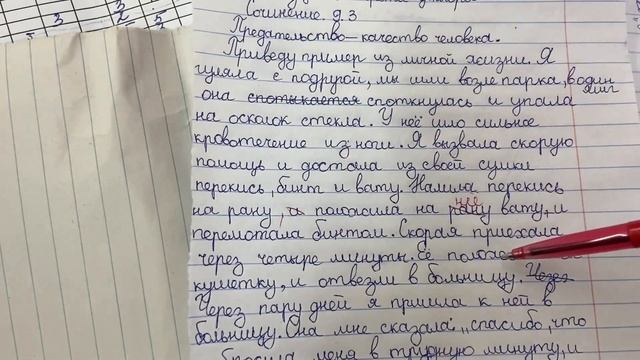 Сочинение. д.з
Предательство – качество человека.
Приведу пример из личной жизни. Я
гуляла с подругой, мы шли возле парка, в один миг
она спотыкается споткнулась и упала
на осколок стекла. У неё шло сильное
кровотечение из ноги. Я вызвала скорую
помощь и достала из своей сумки
перекись, бинт и вату. Налила перекись
на рану, и положила на рану нее вату, и
перемотала бинтом. Скорая приехала
через четыре минуты. Её
кушетку, и отвезли в больницу. Через
Через пару дней я пришла к ней в
больницу. Она мне сказала: „спасибо, что
бросила меня в трудную минуту, и